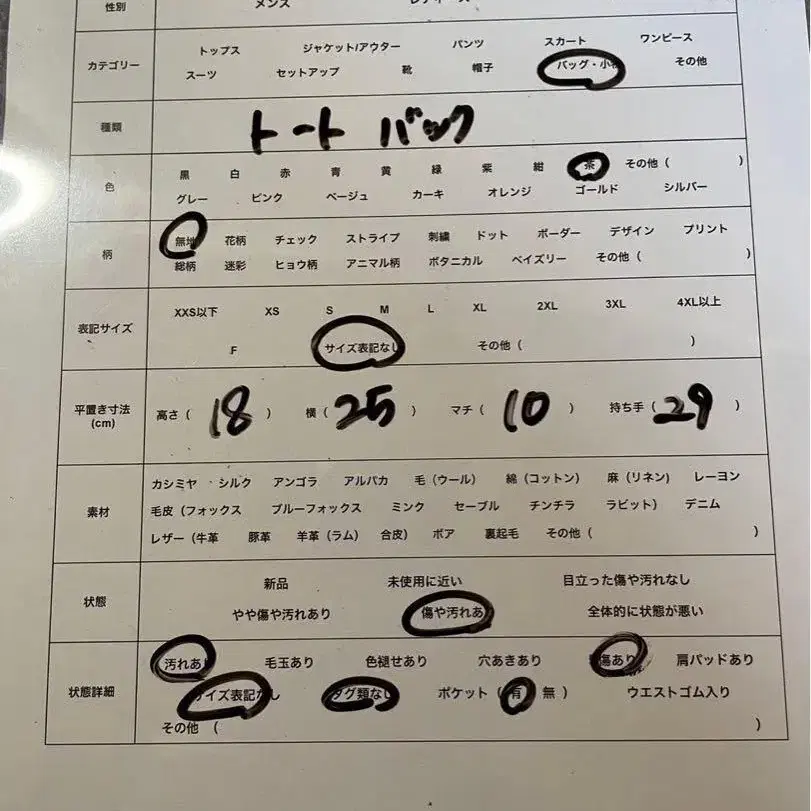 性別 メンズ
カテゴリー トップス ジャケット/アウター パンツ スカート ワンピース
スーツ セットアップ 靴 帽子 バッグ・小 その他
種類 トート バック
色 黒 白 赤 青 黄 緑 紫 紺 茶 その他（ ）
グレー ピンク ベージュ カーキ オレンジ ゴールド シルバー
柄 無地 花柄 チェック ストライプ 刺繍 ドット ボーダー デザイン プリント
総柄 迷彩 ヒョウ柄 アニマル柄 ボタニカル ペイズリー その他（ ）
表記サイズ XXS以下 XS S M L XL 2XL 3XL 4XL以上
F サイズ表記なし その他（ ）
平置き寸法 (cm) 高さ（ 18 ） 横（ 25 ） マチ（ 10 ） 持ち手（ 29 ）
素材 カシミヤ シルク アンゴラ アルパカ 毛（ウール） 綿（コットン） 麻（リネン） レーヨン
毛皮（フォックス ブルーフォックス ミンク セーブル チンチラ ラビット） デニム
レザー（牛革 豚革 羊革（ラム） 合皮） ボア 裏起毛 その他（ ）
状態 新品 未使用に近い 目立った傷や汚れなし
やや傷や汚れあり 傷や汚れあり 全体的に状態が悪い
状態詳細 汚れあり 毛玉あり 色褪せあり 穴あきあり 傷あり 肩パッドあり
サイズ表記なし タグ類なし ポケット（ 有 無 ） ウエストゴム入り
その他（ ）